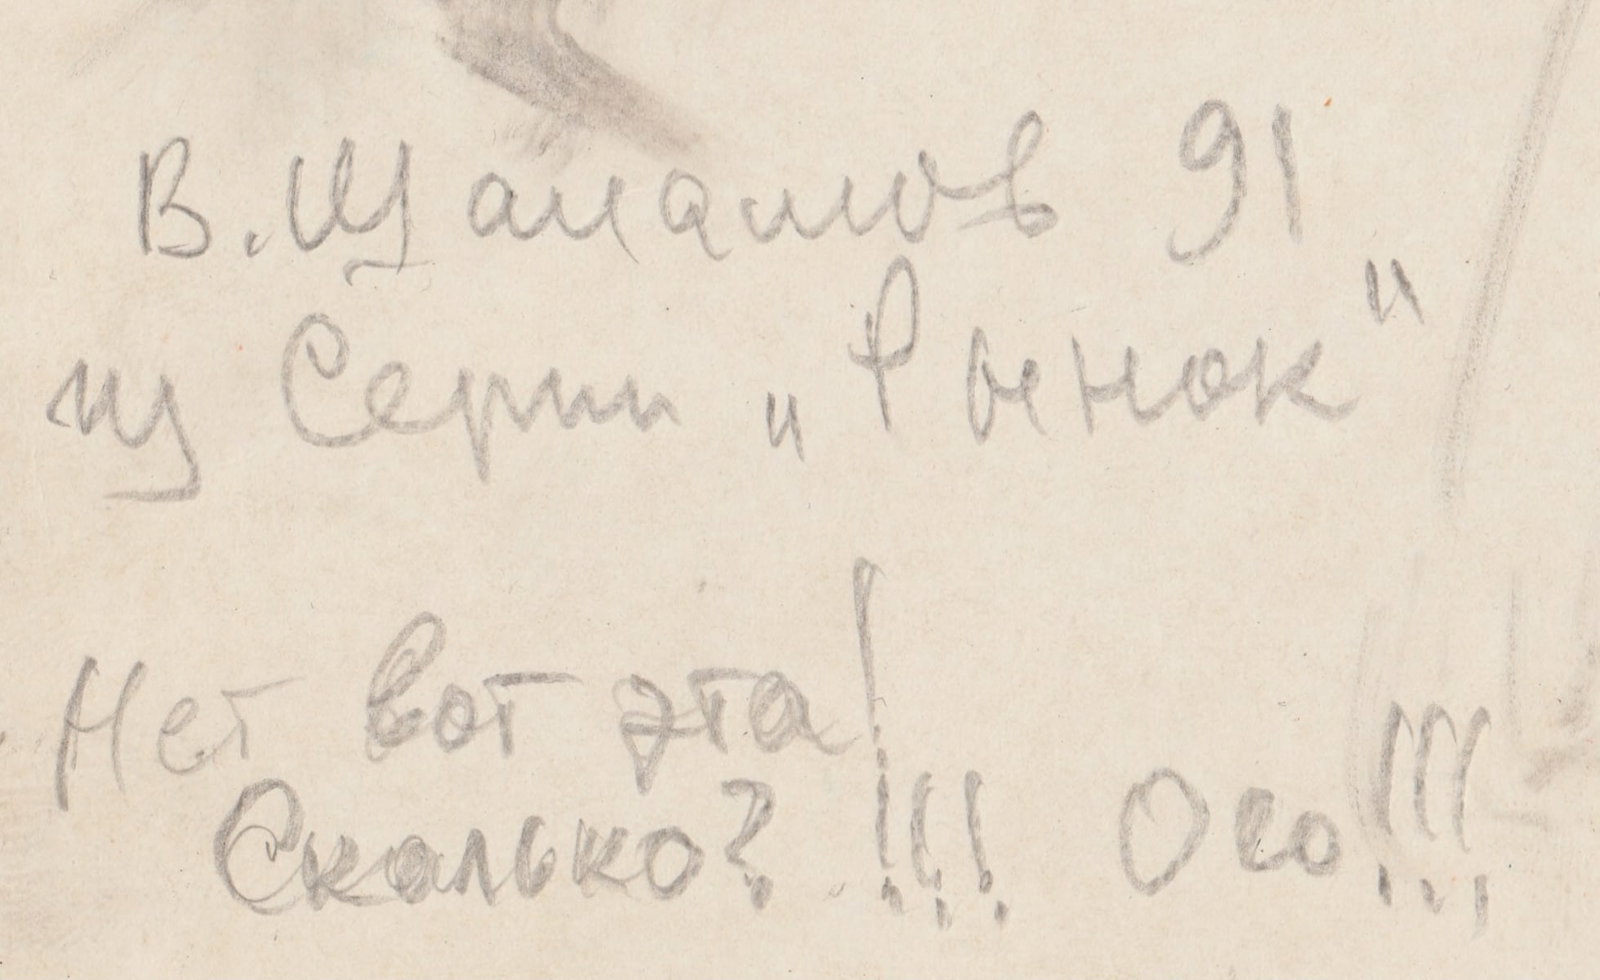 В. 91
из Серии „Рынок"
Нет вот эта!
Сколько? !!! Ого!!!